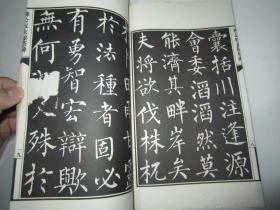 囊括川注逢源
會委滔滔然莫
能濟其畔岸矣
夫將欲伐株杌
於法種者固必
有勇智宏辯歟
無何
殊於
九